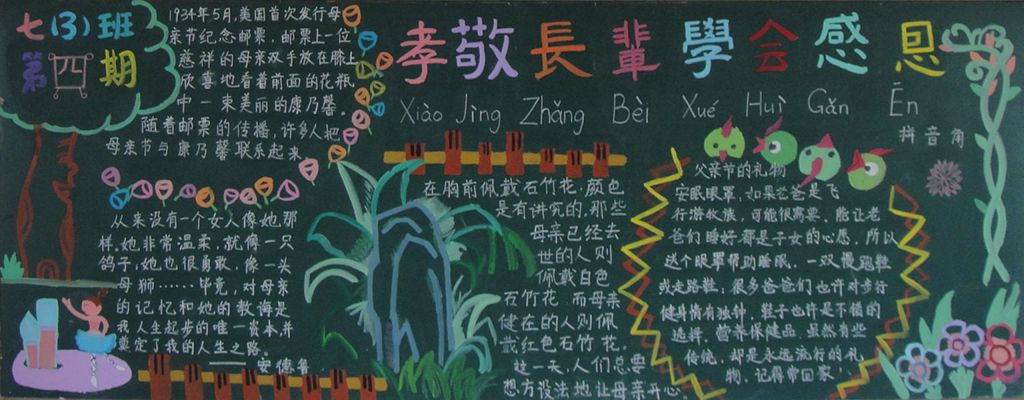 七(3)班
第四期
1934年5月,美国首次发行母
亲节纪念邮票,邮票上一位
慈祥的母亲双手放在膝上
欣喜地看着前面的花瓶
中一束美丽的康乃馨。
随着邮票的传播,许多人把
母亲节与康乃馨联系起来
从来没有一个女人像她那
样,她非常温柔,就像一只
鸽子;她也很勇敢,像一头
母狮……毕竟,对母亲
的记忆和她的教诲是
我人生起步的唯一资本,并
奠定了我的人生之路。
——安德鲁
孝敬長輩 學会感恩
Xiào Jìng Zhǎng Bèi Xué Huì Gǎn Ēn
拼音角
在胸前佩戴石竹花,颜色
是有讲究的,那些
母亲已经去
世的人则
佩戴白色
石竹花,而母亲
健在的人则佩
戴红色石竹花。
这一天,人们总要
想方设法地让母亲开心。
父亲节的礼物
安眠眼罩,如果爸爸是飞
行游牧族,可能很需要,能让老
爸们睡好都是子女的心愿,所以
送个眼罩帮助睡眠,一双慢跑鞋
或走路鞋;很多爸爸们也许对步行
健身情有独钟,鞋子也许是不错的
选择,营养保健品,虽然有些
传统,却是永远流行的礼
物,记得常回家!